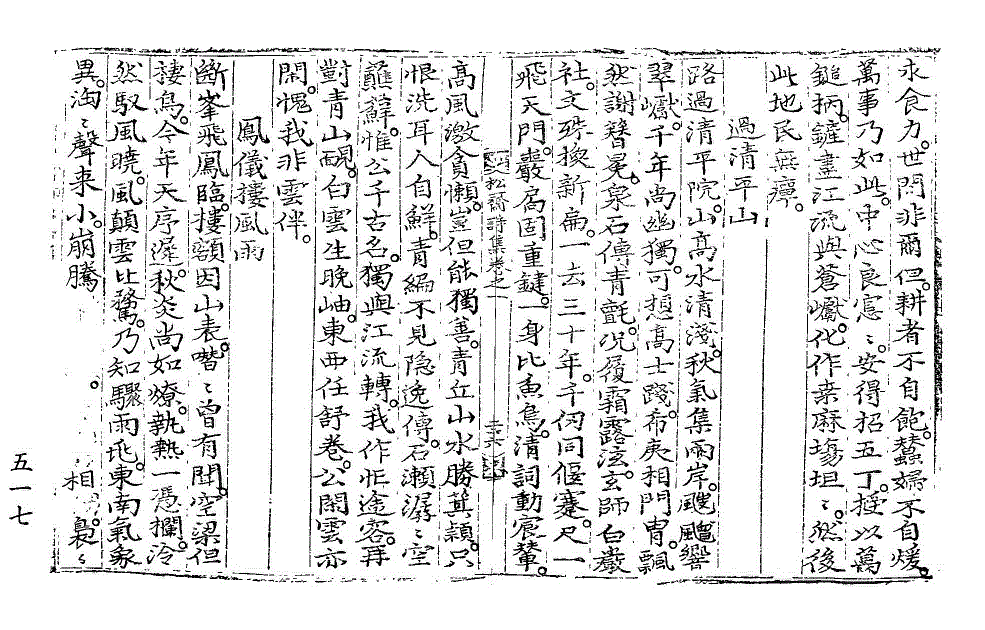 求食力。世間非爾但。耕者不自飽。蠶婦不自煖。
萬事乃如此。中心良悹〻。安得招五丁。授以萬
鎚柄。鏟盡江流與蒼巘。化作桒麻塲坦〻。然後
此地民無癉。
過清平山
路過清平院。山高水清淺。秋氣集兩岸。颼飀響
翠巘。千年尚幽獨。可想高士踐。希夷相門冑。飄
然謝簪冕。泉石傳青氈。況履霜露泫。玄師白蓺
社。文殊揆新扁。一去三十年。千仞同偃蹇。尺一
飛天門。巖扄固重鍵。一身比魚鳥。清詞動宸輦。
松齋詩集卷之一
高風激貪懶。豈但能獨善。青丘山水勝。箕潁只
恨洗耳人自鮮。青編不見隐逸傳。石瀬潺〻空
蘸蘚。惟公千古名。獨與江流轉。我作忙途客。再
對青山靦。白雲生晚岫。東西任舒卷。公閑雲亦
閑。愧我非雲伴。
鳳儀樓風雨
斷峯飛鳳臨。樓額因山表。喈〻曽有聞。空梁但
棲鳥。今年天序遲。秋炎尚如燎。執熱一憑欄。泠
然馭風曉。風顛雲比騖。乃知驟雨兆。東南氣象
異。洶〻聲来小。崩騰
相
裊〻
五一七